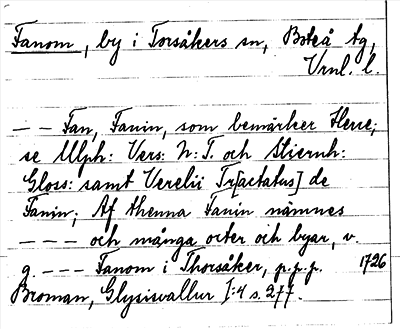 Fanom, by i Torsåkers sn, Boteå tg,
Vrnl. l.
– – Fan, Fanin, som bemärker Herre;
se Ulph: Vers: N: T. och Stiernh:
Gloss: samt Verelii Tr[actatus] de
Fanin; Af thenna Fanin nämnes
– – – och många orter och byar, v.
g. – – – Fanom i Thorsåker, p.p.p. 1726
Broman, Glysisvallur I:4 s. 277.